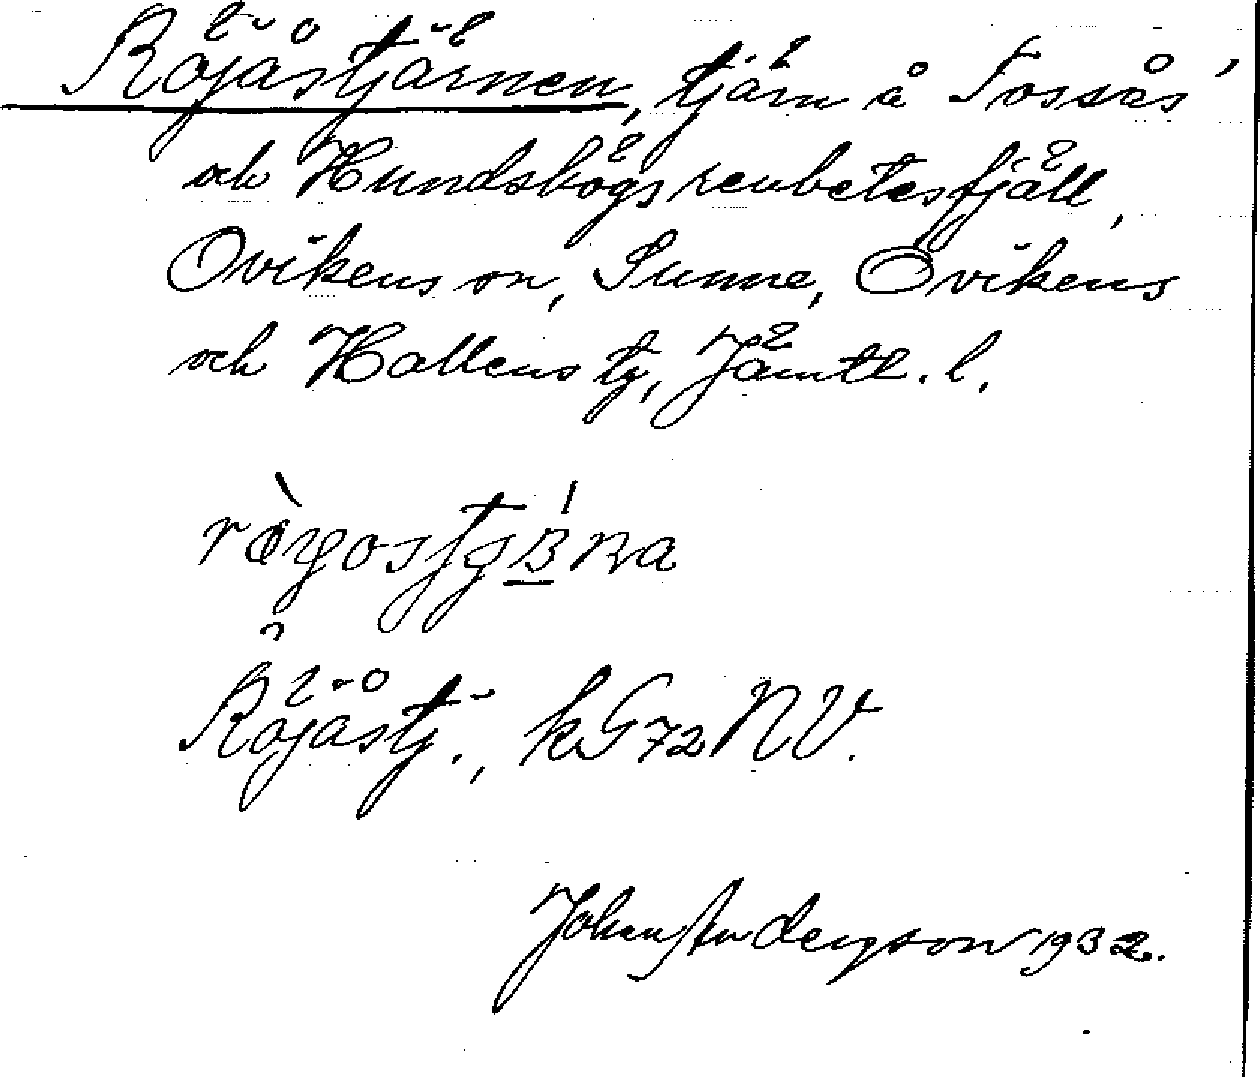 Röjåstjärnen, tjärn å Tossås'
och Hundshögs renbetesfjäll,
Ovikens sn, Sunne, Ovikens
och Hallens tg, Jämtl. l.
Röjåstj., kG 72 NV.
Johan Anderson 1932.